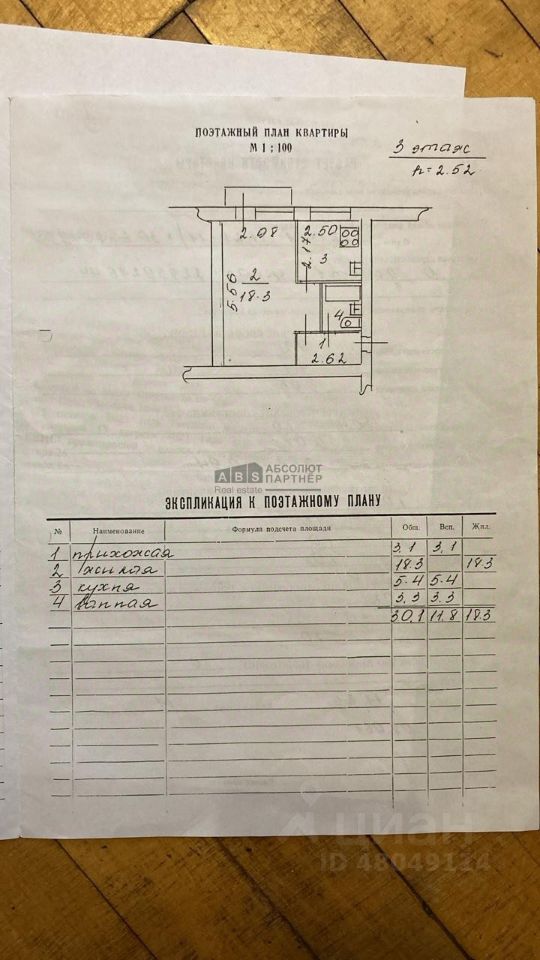 ПОЭТАЖНЫЙ ПЛАН КВАРТИРЫ
М 1 : 100
3 этаж
h = 2.52
2.98
2.50
2.17
3
5.50
2
18.3
4
1
2.62
ABS АБСОЛЮТ ПАРТНЁР
Real estate
ЭКСПЛИКАЦИЯ К ПОЭТАЖНОМУ ПЛАНУ
№ Наименование Формула подсчета площади Общ. Всп. Жил.
1 прихожая 3.1 3.1
2 жилая 18.3 18.3
3 кухня 5.4 5.4
4 ванная 3.3 3.3
30.1 11.8 18.3
циан
ID 48049114